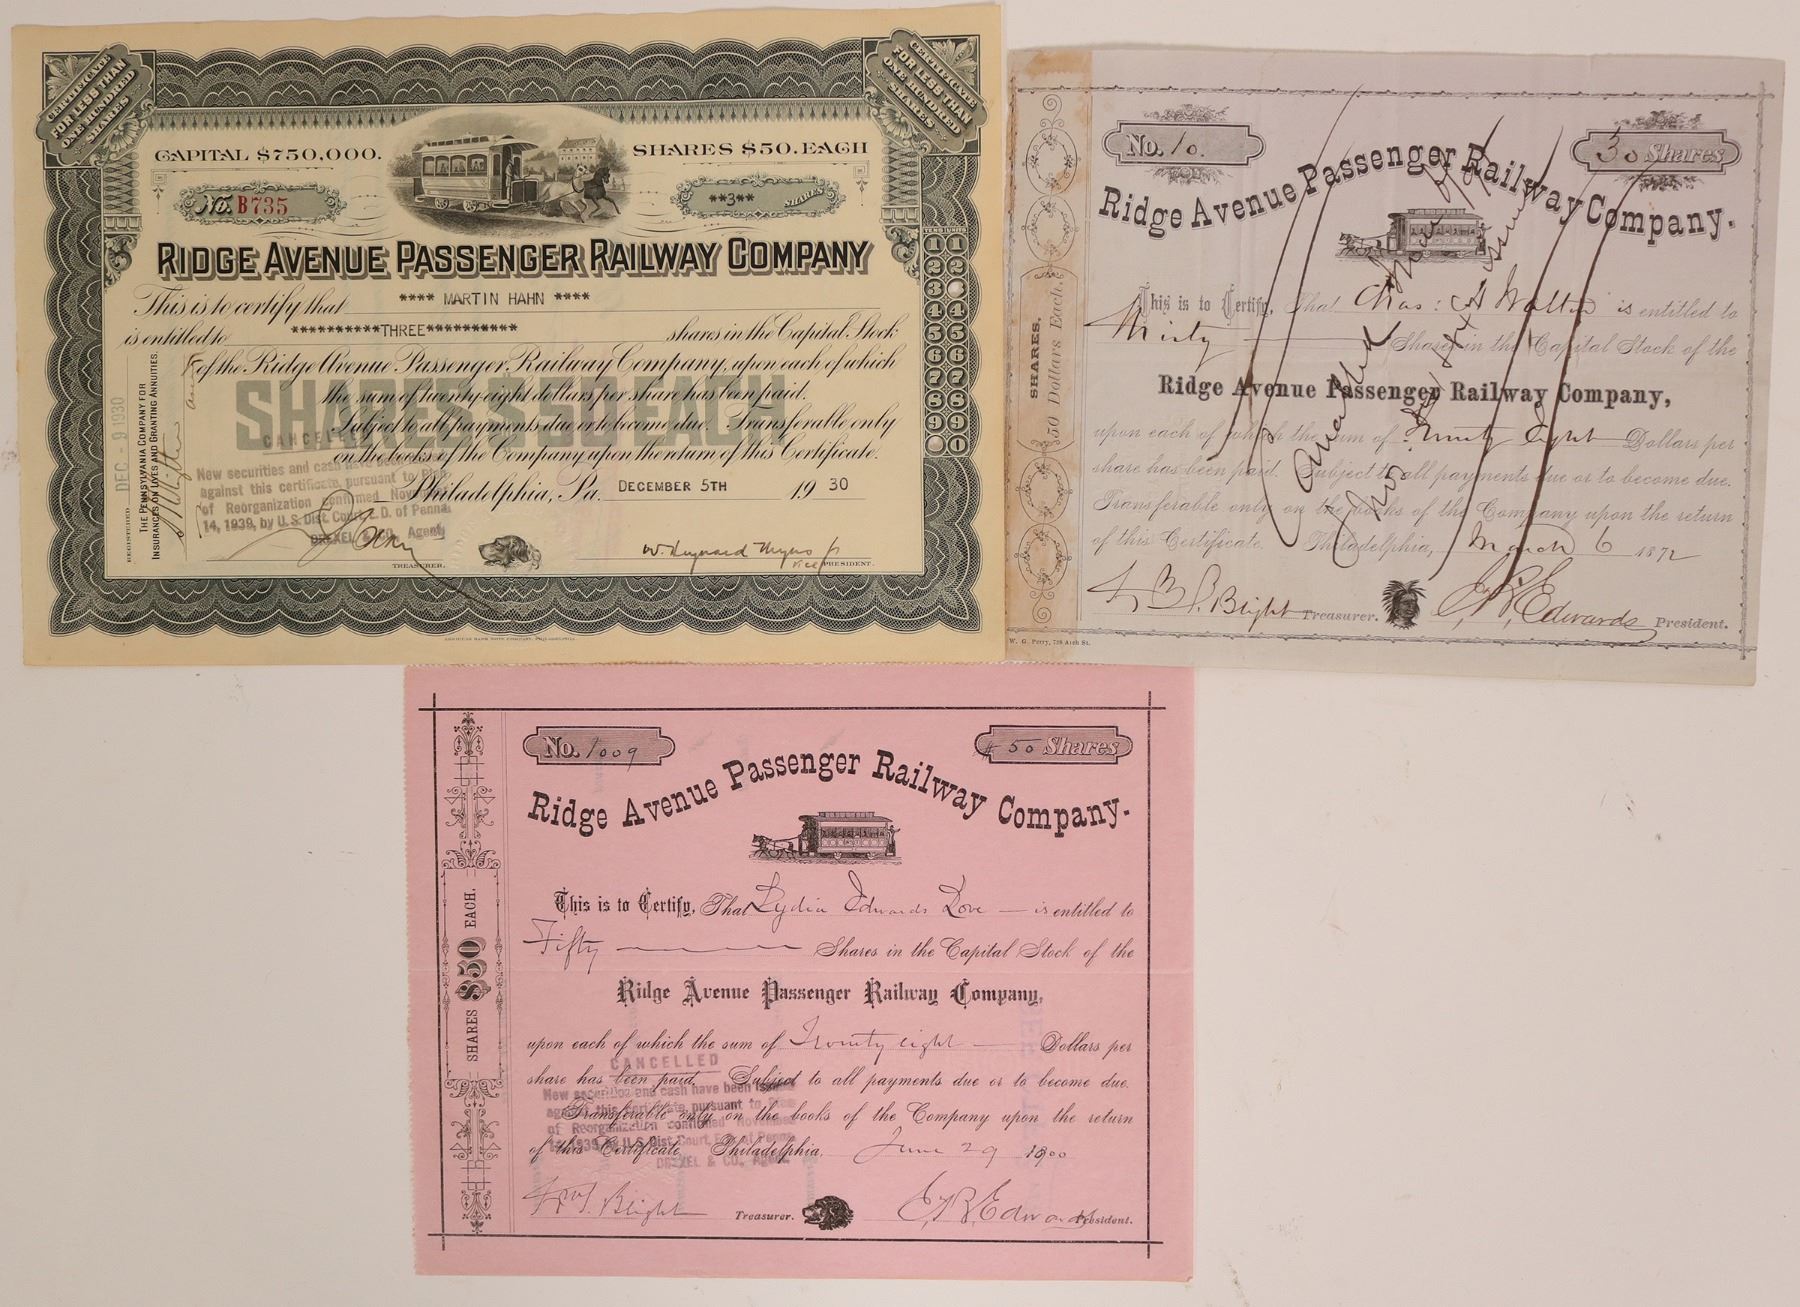 CERTIFICATE
FOR LESS THAN
ONE HUNDRED
SHARES
CERTIFICATE
FOR LESS THAN
ONE HUNDRED
SHARES
CAPITAL $750,000.
SHARES $50. EACH
No. B735
**3** SHARES
TENS UNITS
1 1
2 2
3
4 4
5 5
6 6
7 7
8 8
9 9
0
RIDGE AVENUE PASSENGER RAILWAY COMPANY
This is to certify that **** MARTIN HAHN ****
is entitled to **********THREE********** shares in the Capital Stock
of the Ridge Avenue Passenger Railway Company, upon each of which
the sum of twenty eight dollars per share has been paid.
Subject to all payments due or to become due. Transferable only
on the books of the Company upon the return of this Certificate.
Philadelphia, Pa. DECEMBER 5TH 19 30
SHARES $50 EACH
REGISTERED DEC - 9 1930
THE PENNSYLVANIA COMPANY FOR
INSURANCES ON LIVES AND GRANTING ANNUITIES.
CANCELLED
New securities and cash have been
against this certificate, pursuant to Plan
of Reorganization confirmed Nov
14, 1939, by U.S. Dist. Court, E.D. of Penna.
DREXEL & CO., Agent
TREASURER.
Vice PRESIDENT.
AMERICAN BANK NOTE COMPANY, PHILADELPHIA.
No. 10.
30 Shares
Ridge Avenue Passenger Railway Company.
This is to Certify, That Chas: is entitled to
Thirty Shares in the Capital Stock of the
Ridge Avenue Passenger Railway Company,
upon each of which the sum of Twenty Eight Dollars per
share has been paid. Subject to all payments due or to become due.
Transferable only on the books of the Company upon the return
of this Certificate. Philadelphia, March 6 1872
F. B. Treasurer.
E. B. Edwards President.
Cancelled
SHARES.
50 Dollars Each.
W. G. Perry, 728 Arch St.
No. 1009
50 Shares
Ridge Avenue Passenger Railway Company.
This is to Certify, That Lydia Edwards Dove is entitled to
Fifty Shares in the Capital Stock of the
Ridge Avenue Passenger Railway Company,
upon each of which the sum of Twenty eight Dollars per
share has been paid. Subject to all payments due or to become due.
Transferable only on the books of the Company upon the return
of this Certificate. Philadelphia, June 29 1900
CANCELLED
New securities and cash have been issued
against this certificate, pursuant to Plan
of Reorganization confirmed November
14, 1939, by U.S. Dist. Court, E.D. of Penna.
DREXEL & CO., Agent
Treasurer.
E. B. Edwards President.
SHARES $50 EACH.